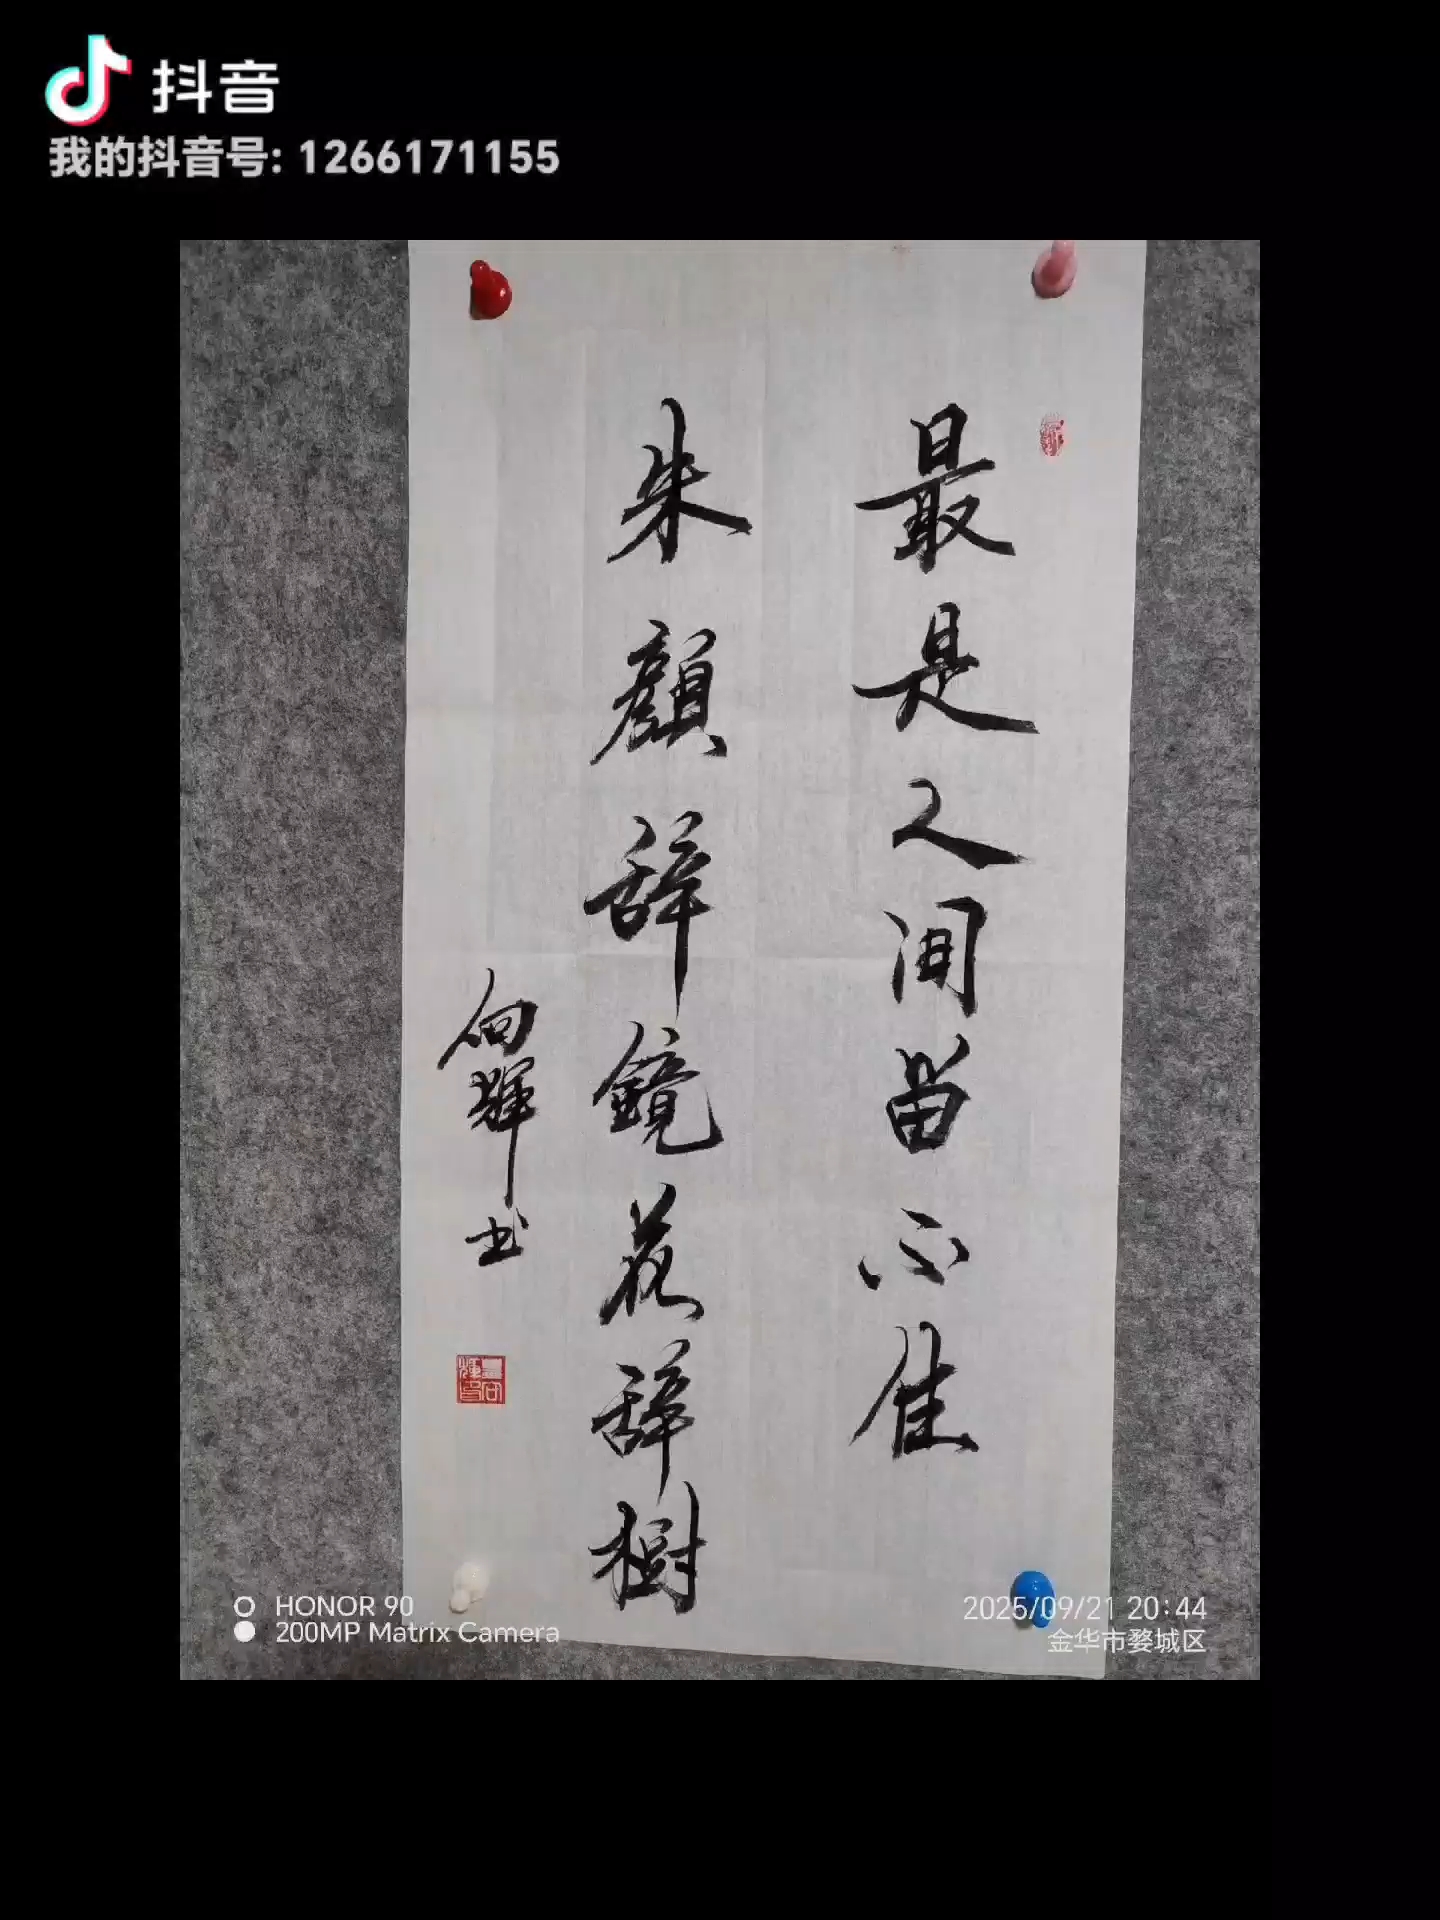 抖音
我的抖音号: 1266171155
最是人间留不住
朱顔辞鏡花辞樹
向輝书
HONOR 90
200MP Matrix Camera
2025/09/21 20:44
金华市婺城区